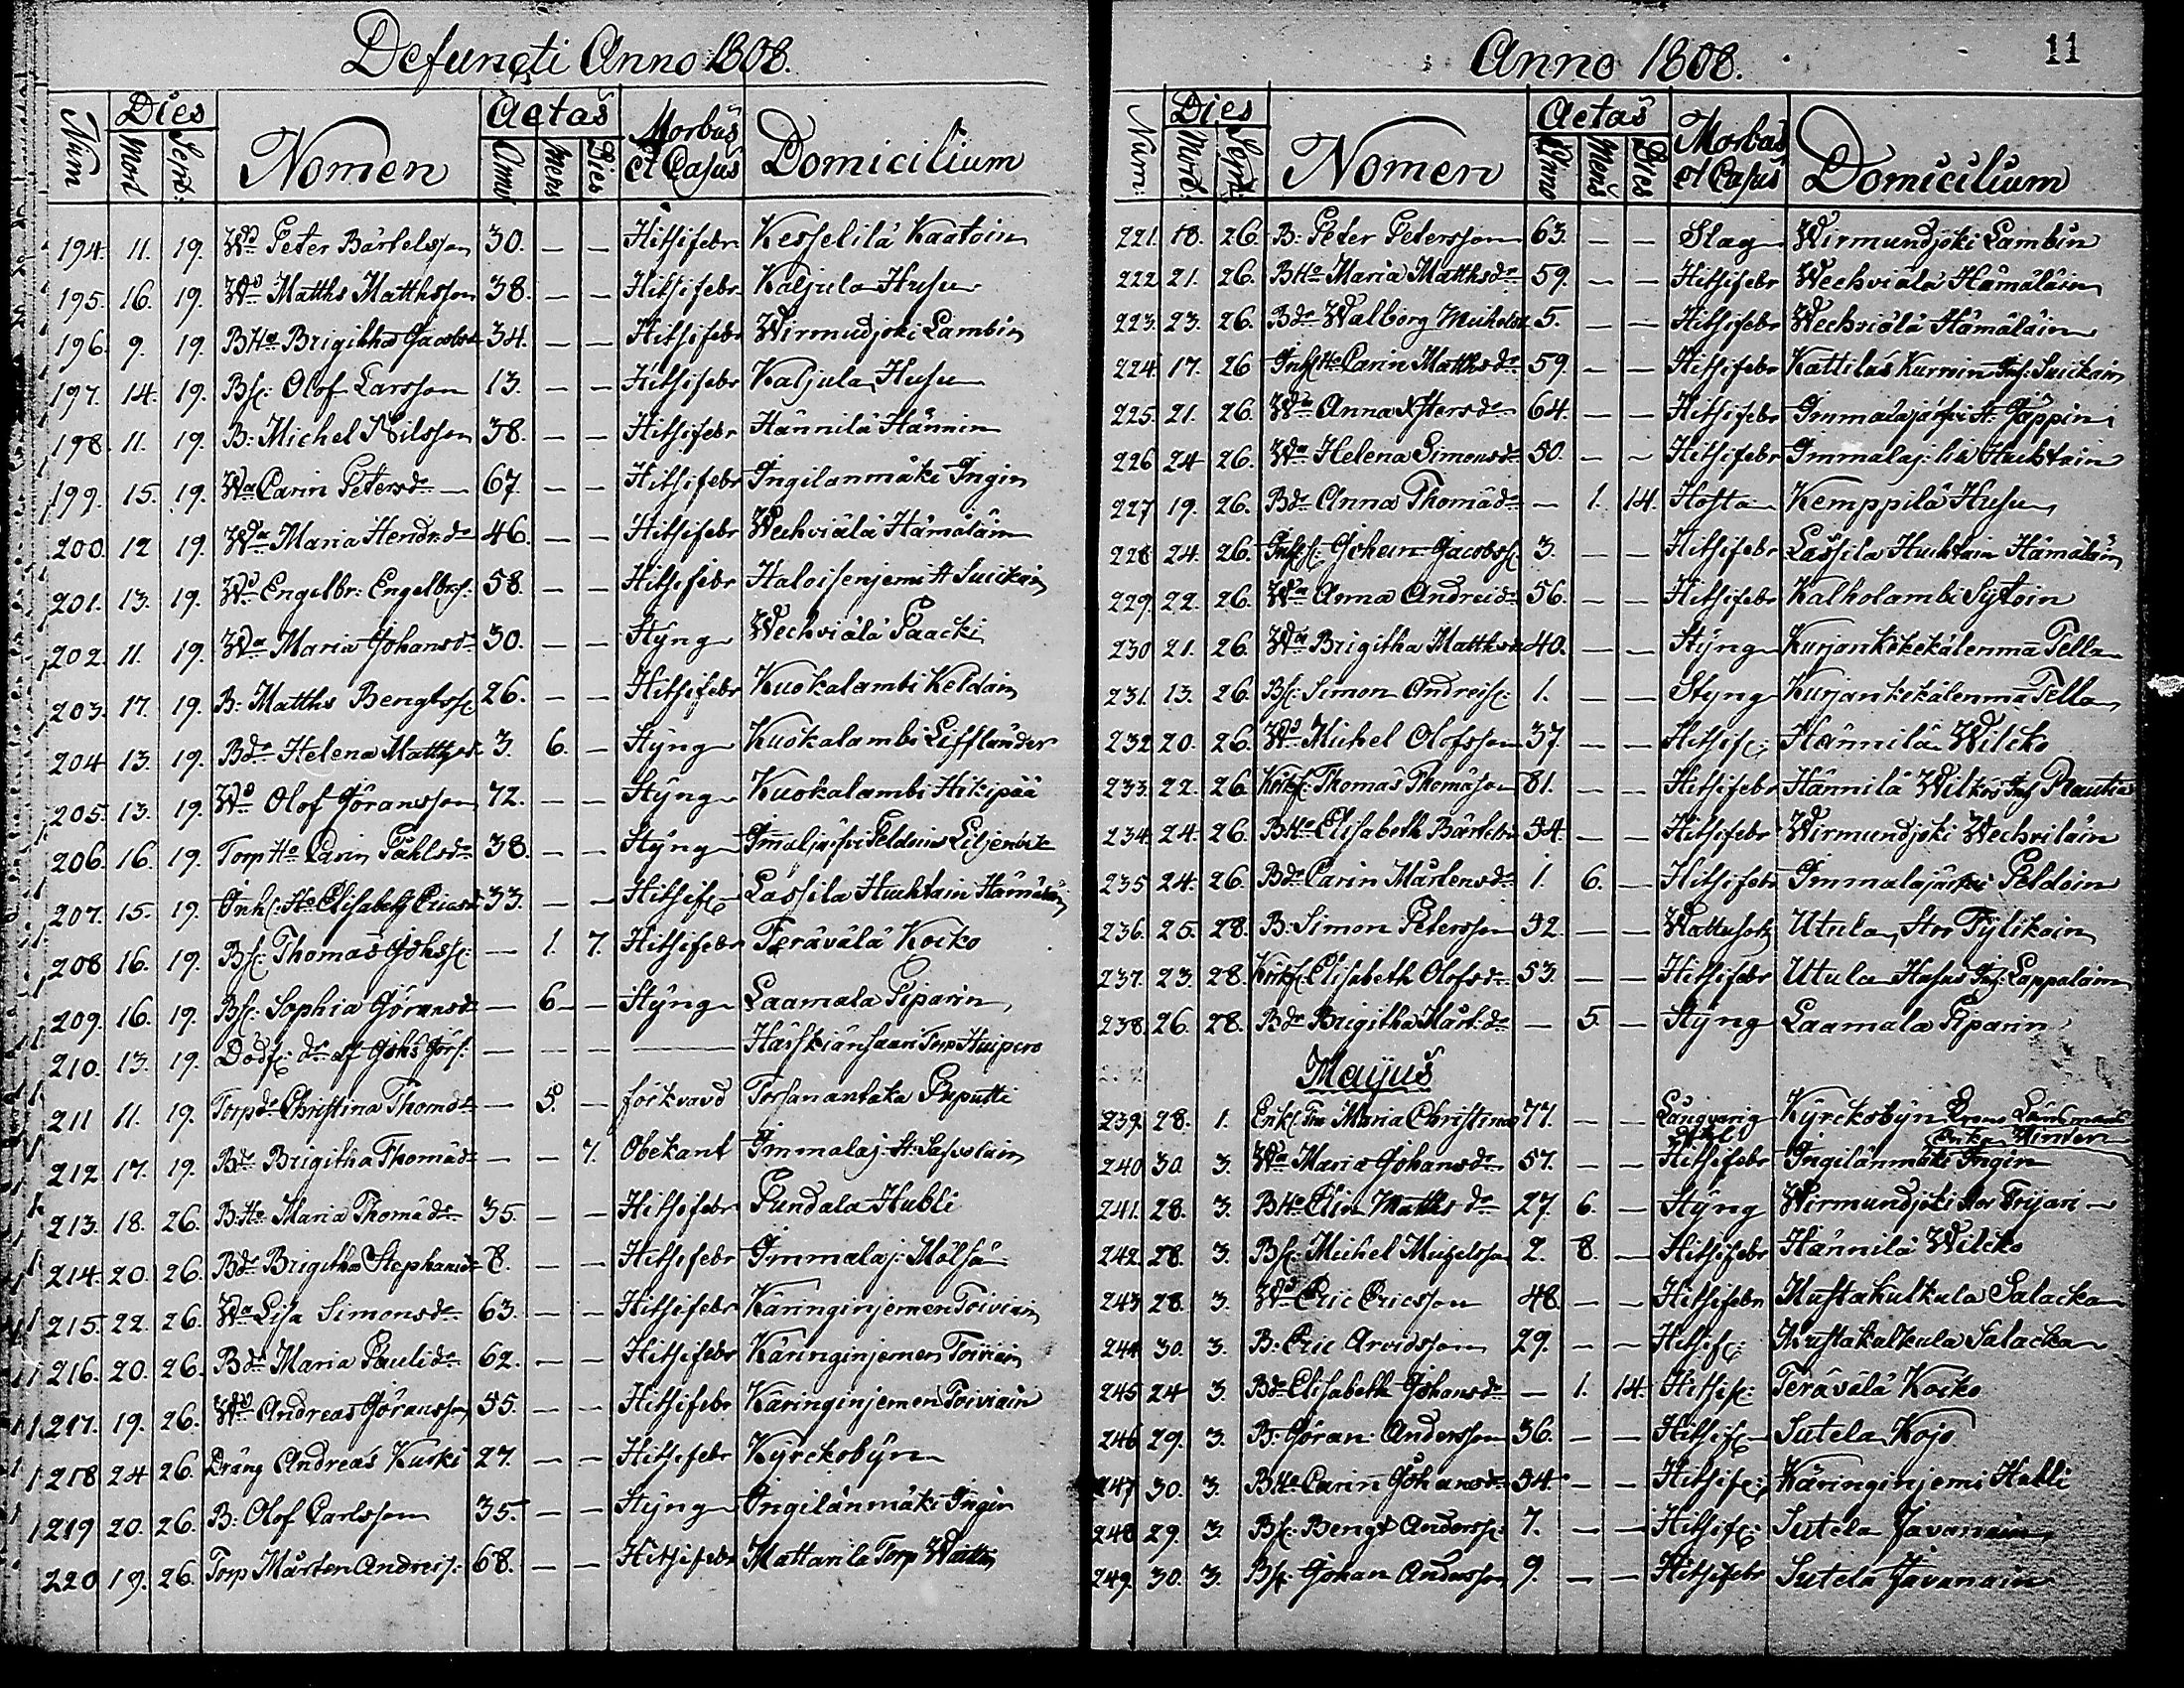 Defuncti Anno 1808.
Num Dies Mort Sept: Nomen Aetas Anno Mens Dies Morbus et Casus Domicilium
194. 11. 19. Wd Peter Bärtelsson 30. — — Hitsifebr Kesselilä Kaatoin
195. 16. 19. Wd Matths Matthsson 38. — — Hitsifebr Kaljula Husu
196. 9. 19. BHo Brigitha Jacobsd 34. — — Hitsifebr Wirmudjoki Lambin
197. 14. 19. Bs: Olof Larsson 13. — — Hitsifebr Kaljula Husu
198. 11. 19. B: Michel Nilsson 38. — — Hitsifebr Hännilä Hännin
199. 15. 19. Wa Carin Petersdr — 67. — — Hitsifebr Ingilanmäki Ingin
200. 12 19. Wa Maria Hendr:dr 46. — — Hitsifebr Wechviälä Hämäläin
201. 13. 19. Wd Engelbr: Engelbrs: 58. — — Hitsifebr Haloisenjemi H Suickain
202. 11. 19. Wa Maria Johansdr 30. — — Styng Wechviälä Paacki
203. 17. 19. B: Matths Bengtss: 26. — — Hitsifebr Kuokalambi Keldain
204 13. 19. Bdr Helena Matthsd 3. 6. — Styng Kuokalambi Lifflander
205. 13. 19. Wd Olof Göransson 72. — — Styng Kuokalambi Hikipää
206. 16. 19. Torp Ho Carin Påhlsdr 38. — — Styng Imaljärfvi Peldoin Liljenbäk
207. 15. 19. Inh: Ho Elisabeth Ericsd 33. — — Hitsif: Lässila Huchtain Hämäläin
208 16. 19. Bs: Thomas Johss: — 1. 7. Hitsifebr Terävälä Kocko
209. 16. 19. Bs: Sophia Göransd — 6 — Styng Laamala Piparin
210. 13. 19. Dödf: dr af Johs Görs: — — — —— Härskiänsaari Torp Huipero
211 11. 19. Torp dr Christina Thomdr — 5. — Torsanantaka Puputti
212 17. 19. Bdr Brigitha Thomäd — — 7. Obekant Immalaj:
213. 18. 26. B:Ho Maria Thomädr 35. — — Hitsifebr Pundala Hubli
214. 20. 26. Bdr Brigitha Stephansd 8. — — Hitsifebr Immalaj: Mölsä
215. 22. 26. Wa Lisa Simonsdr 63. — — Hitsifebr Käringinjemen Toiviain
216. 20. 26. Bdr Maria Paulidr 62. — — Hitsifebr Käringinjemen Toiviain
217. 19. 26. Wd Andreas Göransson 55. — — Hitsifebr Käringinjemen Toiviain
218 24 26. Dräng Andreas Kurki 27. — — Hitsifebr Kyrckobyn
219 20. 26. B: Olof Carlsson 35. — — Styng Ingilänmäki Ingin
220 19. 26. Torp Mårten Andreis: 68. — — Hitsifebr Mattarila Torp
Anno 1808. 11
Num: Dies Mort: Sept: Nomen Aetas Anno Mens Dies Morbus et Casus Domicilium
221. 18. 26. B: Peter Petersson 63. — — Slag Wirmundjoki Lambin
222 21. 26. BHo Maria Matthsdr 59. — — Hitsifebr Wechviälä Hämäläin
223. 23. 26. Bdr Walborg Michelsd 5. — — Hitsifebr Wechviälä Hämäläin
224. 17. 26 InhHo Carin Matthsdr 59. — — Hitsifebr Kattilus Kurnin Inh: Suickain
225. 21. 26. Wa Anna 64. — — Hitsifebr Immalajärfvi H: Jäppin
226 24 26. Wa Helena Simonsdr 50. — — Hitsifebr Immalaj: lill Huchtain
227 19. 26. Bdr Anna Thomädr — 1. 14. Hosta Kemppilä Husu
228 24. 26. Inhs: Johan Jacobss: 3. — — Hitsifebr Lässila Huchtain Hämäläin
229. 22. 26. Wa Anna Andreidr 56. — — Hitsifebr Kalholambi Sytoin
230 21. 26. Wa Brigitha Matthsd 40. — — Styng Tella
231. 13. 26. Bs: Simon Andreis: 1. — — Styng Tella
232 20. 26. Wd Michel Olofsson 37. — — Hitsif: Hännilä Wilcko
233. 22. 26 Thomas Thomäson 81. — — Hitsifebr Hännilä Wilkos Inh Rautia
234. 24. 26. BHo Elisabeth Bärtelsd 54. — — Hitsifebr Wirmundjoki Wechvilain
235 24. 26. Bdr Carin Mårtensdr 1. 6. — Hitsifebr Immalajärfvi Peldoin
236. 25. 28. B: Simon Petersson 52. — — Wattusot Utula, Stor Pylikoin
237. 23. 28. Elisabeth Olofsdr 53. — — Hitsifebr Utula Husus Inh: Lappalain
238. 26. 28. Bdr Brigitha Mårt:dr — 5. — Styng Laamala Piparin
Majus
239. 28. 1. Enkef: Fru Maria Christina 77. — — Långvarig Kyrckobyn Länsmans Enka
240 30. 3. Wa Maria Johansdr 57. — — Hitsifebr Ingilänmäki Ingin
241. 28. 3. BHo Elin Matthsdr 27. 6. — Styng Wirmundjoki Stor Frijari —
242. 28. 3. Bs: Michel Michelsson 2. 8. — Hitsifebr Hännilä Wilcko
243 28. 3. Wd Eric Ericsson 48. — — Hitsifebr Mustakulkula Salacka
244 30. 3. B: Eric Arvidsson 29. — — Hitsif: Mustakalkula Salacka
245 24 3. Bdr Elisabeth Johansdr — 1. 14. Hitsif: Terävälä Kocko
246 29. 3. B: Göran Andersson 36. — — Hitsif: Sutela Kojo
247 30. 3. BHo Carin Johansdr 54. — — Hitsif: Käringinjemi Hubli
248 29. 3. Bs: Bengt Anderss: 7. — — Hitsif: Sutela Javanain
249. 30. 3. Bs: Johan Andersson 9. — — Hitsifebr Sutela Javanain